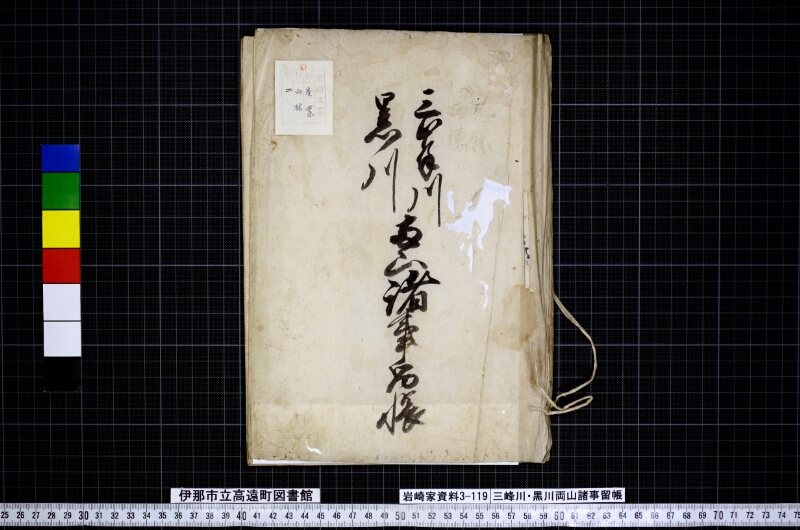 産業
山林
二
三峯川
黒川
両山諸事留帳
伊那市立高遠町図書館
岩崎家資料3-119
三峰川・黒川両山諸事留帳
25 26 27 28 29 30 31 32 33 34 35 36 37 38 39 40 41 42 43 44 45 46 47 48 49 50 51 52 53 54 55 56 57 58 59 60 61 62 63 64 65 66 67 68 69 70 71 72 73 74